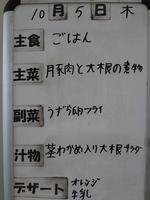 10月5日 木
主食 ごはん
主菜 豚肉と大根の煮物
副菜 うずら卵フライ
汁物 茎わかめ入り大根サラダ
デザート オレンジ
牛乳